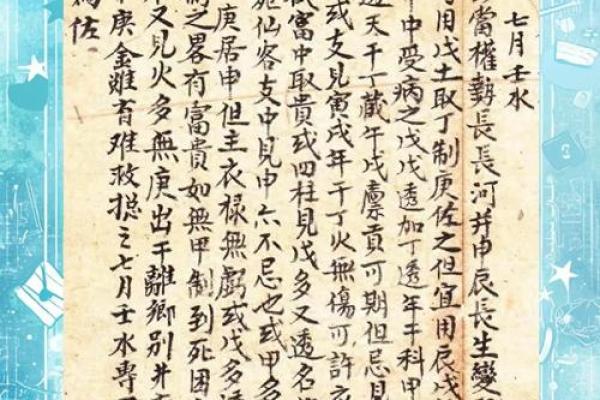 七月壬水
當權勢長長河并申辰長生變
用戊土取丁制庚佐之但宜用辰戌
中受病之戊戊透加丁透年干科甲
天干丁藏午戌廪貢可期但忌見
或支見寅戌年干丁火無傷可許衣
富中取貴或四柱見戊多又透名
苑仙客支中見申亦不忌也或甲多
庚居申但主衣祿無虧或戊多透
制之畧有富貴如無甲制到死困
又見火多無庚出干離鄉别井
庚金難育難救㧾之七月壬水專用
爲佐